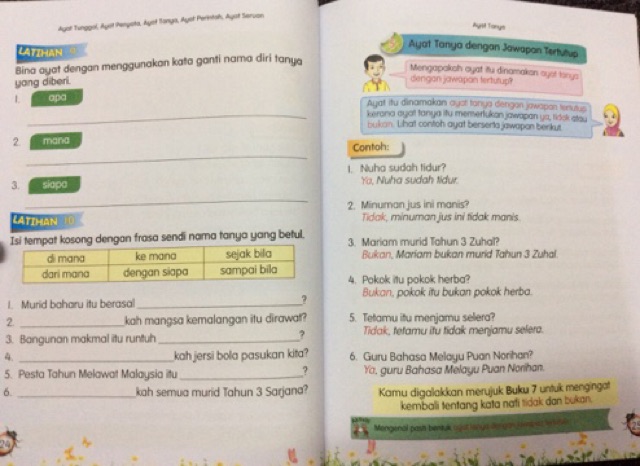 Ayat Tunggal, Ayat Penyata, Ayat Tanya, Ayat Perintah, Ayat Seruan
LATIHAN 9
Bina ayat dengan menggunakan kata ganti nama diri tanya
yang diberi.
1. apa
2. mana
3. siapa
LATIHAN 10
Isi tempat kosong dengan frasa sendi nama tanya yang betul.
di mana ke mana sejak bila
dari mana dengan siapa sampai bila
1. Murid baharu itu berasal ?
2. kah mangsa kemalangan itu dirawat?
3. Bangunan makmal itu runtuh ?
4. kah jersi bola pasukan kita?
5. Pesta Tahun Melawat Malaysia itu ?
6. kah semua murid Tahun 3 Sarjana?
24
Ayat Tanya
Ayat Tanya dengan Jawapan Tertutup
Mengapakah ayat itu dinamakan ayat tanya
dengan jawapan tertutup?
Ayat itu dinamakan ayat tanya dengan jawapan tertutup
kerana ayat tanya itu memerlukan jawapan ya, tidak atau
bukan. Lihat contoh ayat berserta jawapan berikut.
Contoh:
1. Nuha sudah tidur?
Ya, Nuha sudah tidur.
2. Minuman jus ini manis?
Tidak, minuman jus ini tidak manis.
3. Mariam murid Tahun 3 Zuhal?
Bukan, Mariam bukan murid Tahun 3 Zuhal.
4. Pokok itu pokok herba?
Bukan, pokok itu bukan pokok herba.
5. Tetamu itu menjamu selera?
Tidak, tetamu itu tidak menjamu selera.
6. Guru Bahasa Melayu Puan Norihan?
Ya, guru Bahasa Melayu Puan Norihan.
Kamu digalakkan merujuk Buku 7 untuk mengingat
kembali tentang kata nafi tidak dan bukan.
Mengenal pasti bentuk